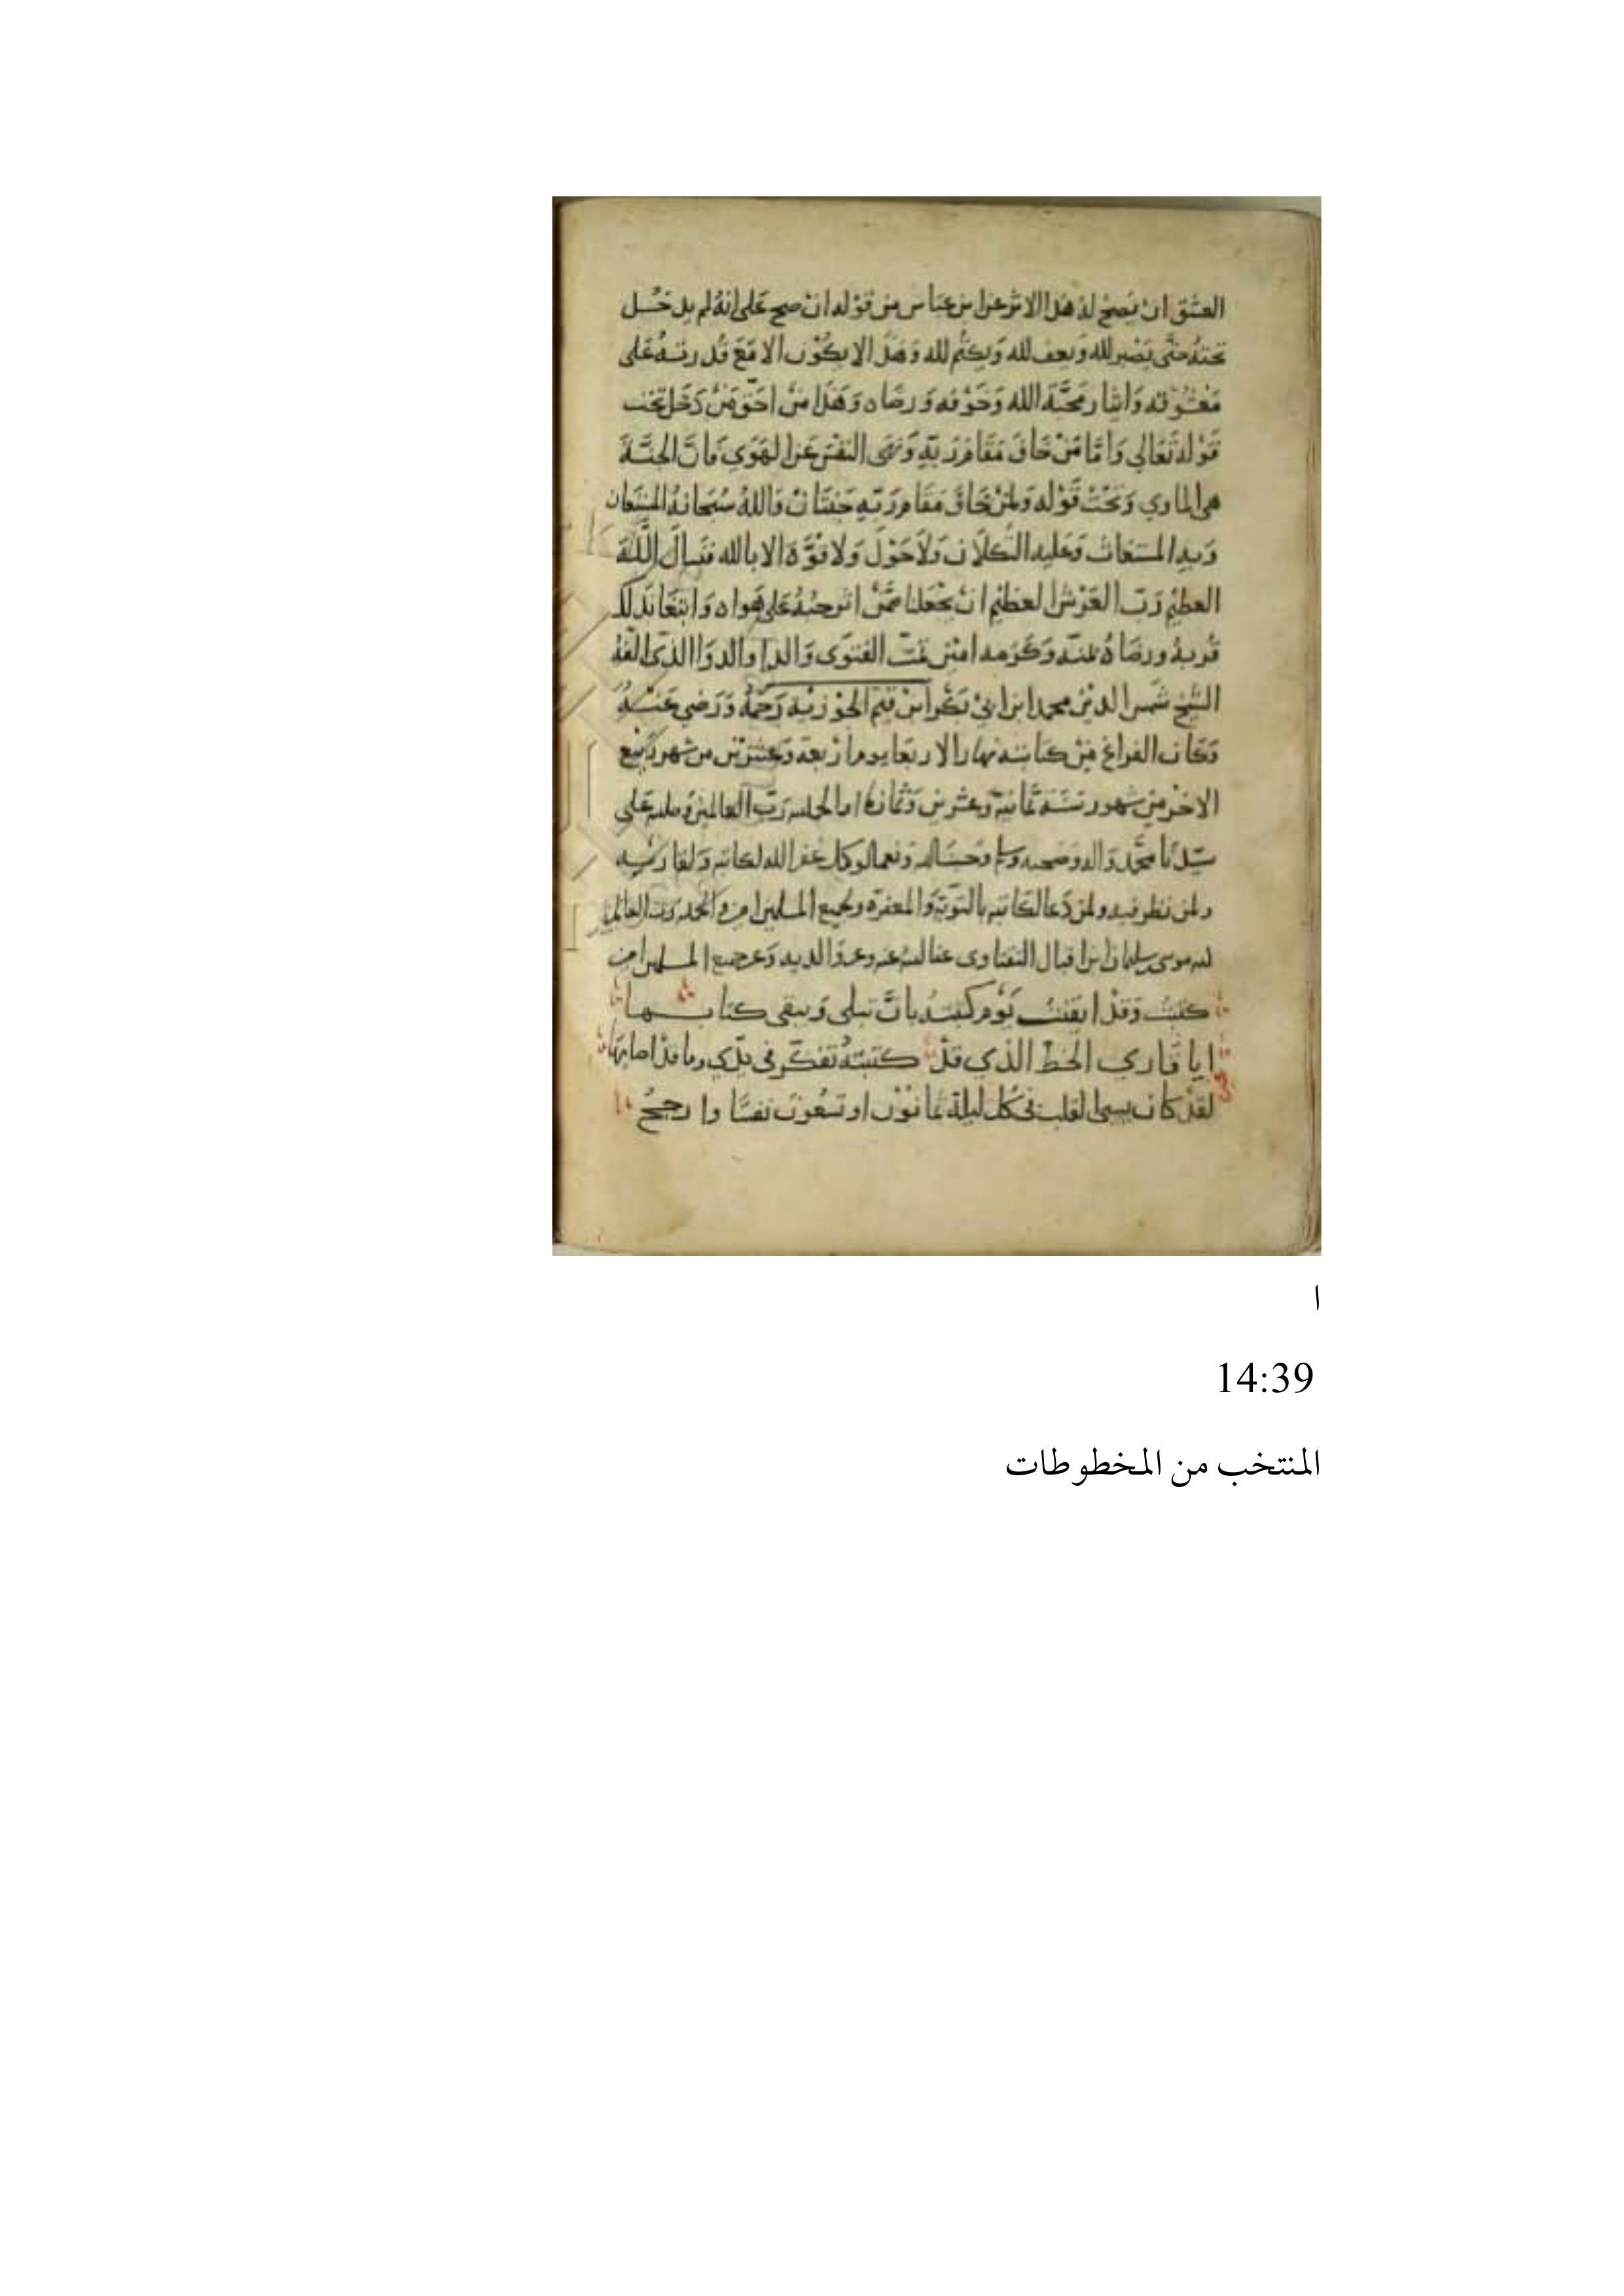 العشق ان يصح له هذا الاثر عن ابن عباس من قوله ان صح على انه لم يدخل
تحته حتى يصبر لله ويعف لله ويكتم لله وهذا لا يكون الا مع قدرته على
معشوقه وايثار محبة الله وخوفه ورضاه وهذا من احق من دخل تحت
قوله تعالي واما من خاف مقام ربه ونهى النفس عن الهوي فان الجنة
هي الماوي وتحت قوله ولمن خاف مقام ربه جنتان والله سبحانه المستعان
وبه المستغاث وعليه التكلان ولا حول ولا قوة الا بالله فنسال الله
العظيم رب العرش العظيم ان يجعلنا ممن اثر حبه على هواه وابتغا بذلك
قربه ورضاه بمنه وكرمه امين تمت الفتوى والدا والدوا الذي الفه
الشيخ شمس الدين محمد ابن ابي بكر ابن قيم الجوزية رحمه ورضي عنه
وكان الفراغ من كتابته نهار الاربعا يوم اربعة وعشرين من شهر ربيع
الاخر من شهور سنة ثمانية وعشرين وثمان والحمد لله رب العالمين وصلى على
سيدنا محمد واله وصحبه وسلم وحسبنا الله ونعم الوكيل غفر الله لكاتبه ولقاريه
ولمن نظر فيه ولمن دعا لكاتبه بالتوبة والمغفرة ولجميع المسلمين امين والحمد لله رب العالمين
موسى سليمان ابن اقبال عفا الله عنه وعن والديه وعن جميع المسلمين امين
كتبت وقد ايقنت يوم كتبته بان تبلى ويبقى كتابها
ايا قاري الخط الذي قد كتبته تفكر في يدي وما قد اصابها
لقد كان القلب في كل ليلة ثمانون او تسعون نفسا وارجح
ا
14:39
المنتخب من المخطوطات